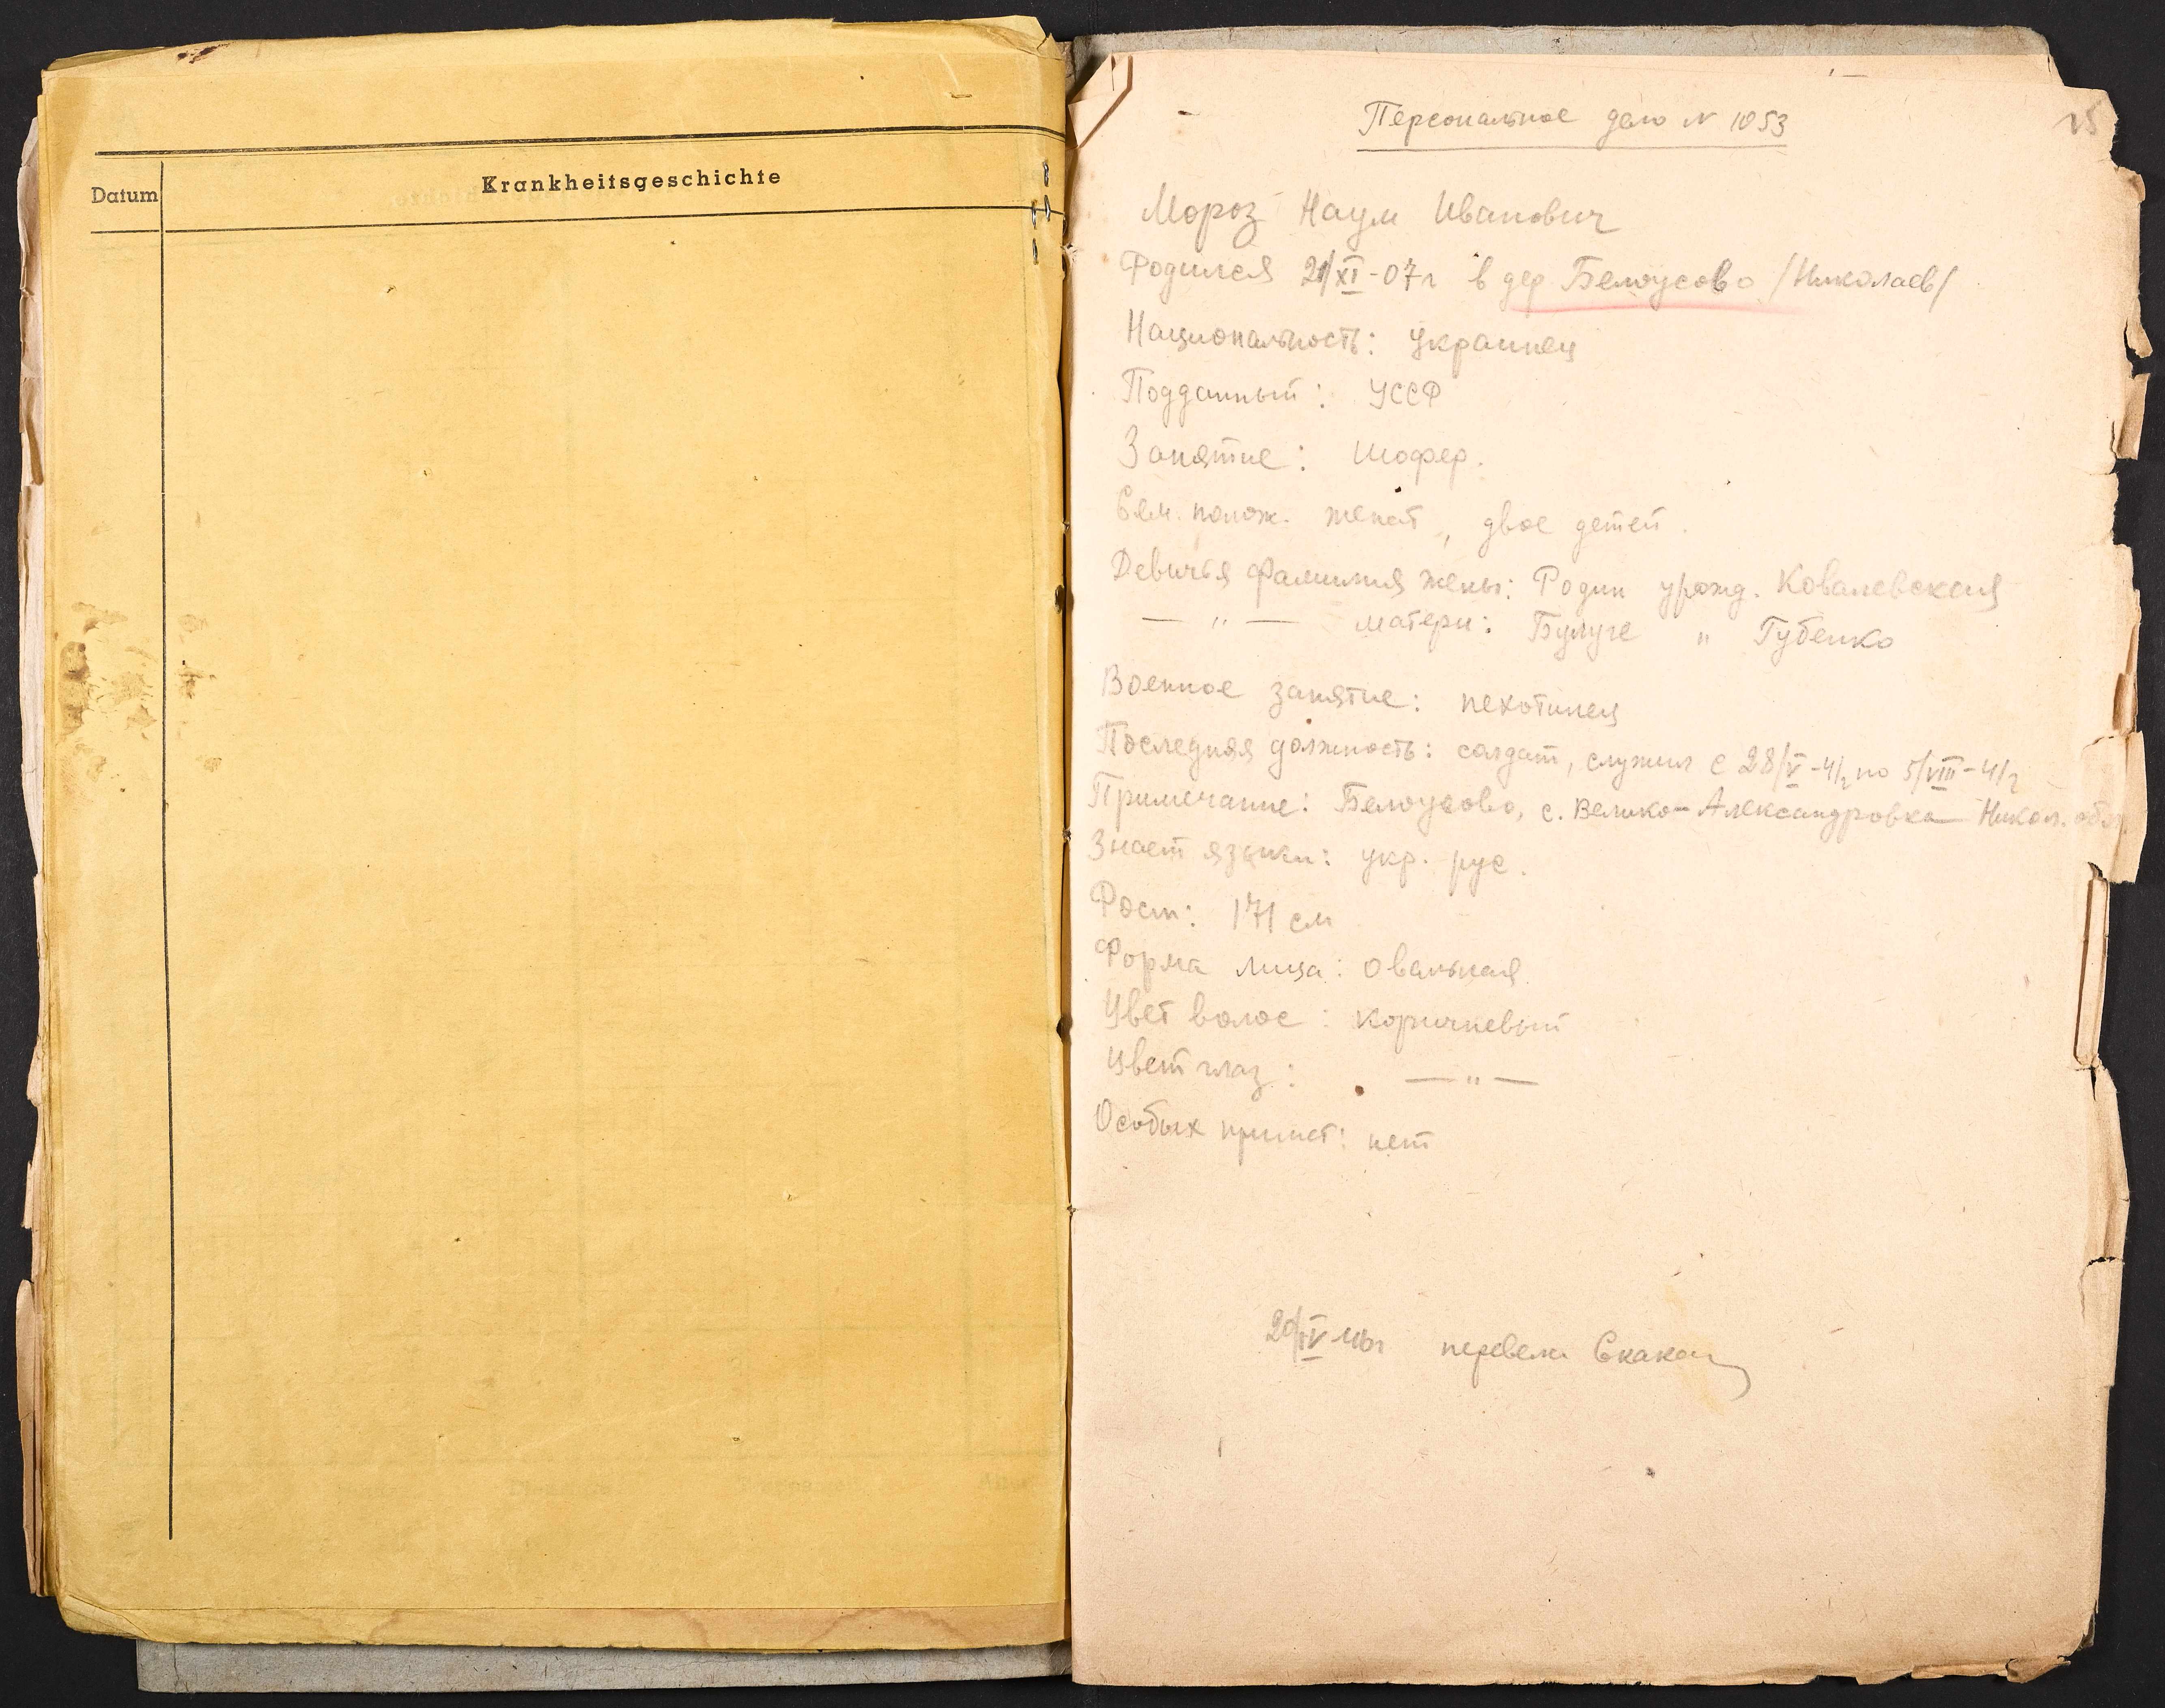 Datum
Krankheitsgeschichte
15
Персональное дело N 1053
Мороз Наум Иванович
Родился 21/XI-07г в дер Белоусово /Николаев/
Национальность: украинец
Подданный: УССР
Занятие: шофер.
Сем. полож. женат, двое детей.
Девичья фамилия жены: Родин урожд. Ковалевская
— " — матери: " Губенко
Военное занятие: пехотинец
Последняя должность: солдат, служил с 28/V-41г по 5/VIII-41г
Примечание: Белоусово, с. Велико-Александровка Никол. обл.
Знает языки: укр. рус.
Рост: 171 см
Форма лица: овальная.
Цвет волос: коричневый
Цвет глаз: — " —
Особых примет: нет
20/IV 46г перевела